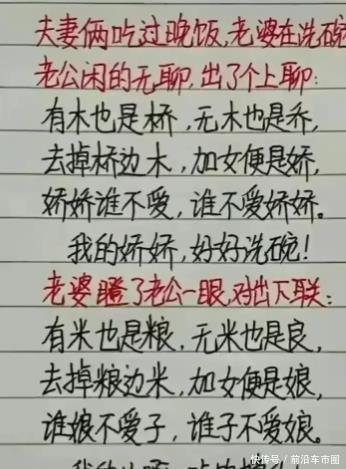 夫妻俩吃过晚饭,老婆在洗碗
老公闲的无聊,出了个上聊:
有木也是桥,无木也是乔,
去掉桥边木,加女便是娇,
娇娇谁不爱,谁不爱娇娇。
我的娇娇,好好洗碗!
老婆瞪了老公一眼,对出下联:
有米也是粮,无米也是良,
去掉粮边米,加女便是娘,
谁娘不爱子,谁子不爱娘。
快传号/前沿车市圈